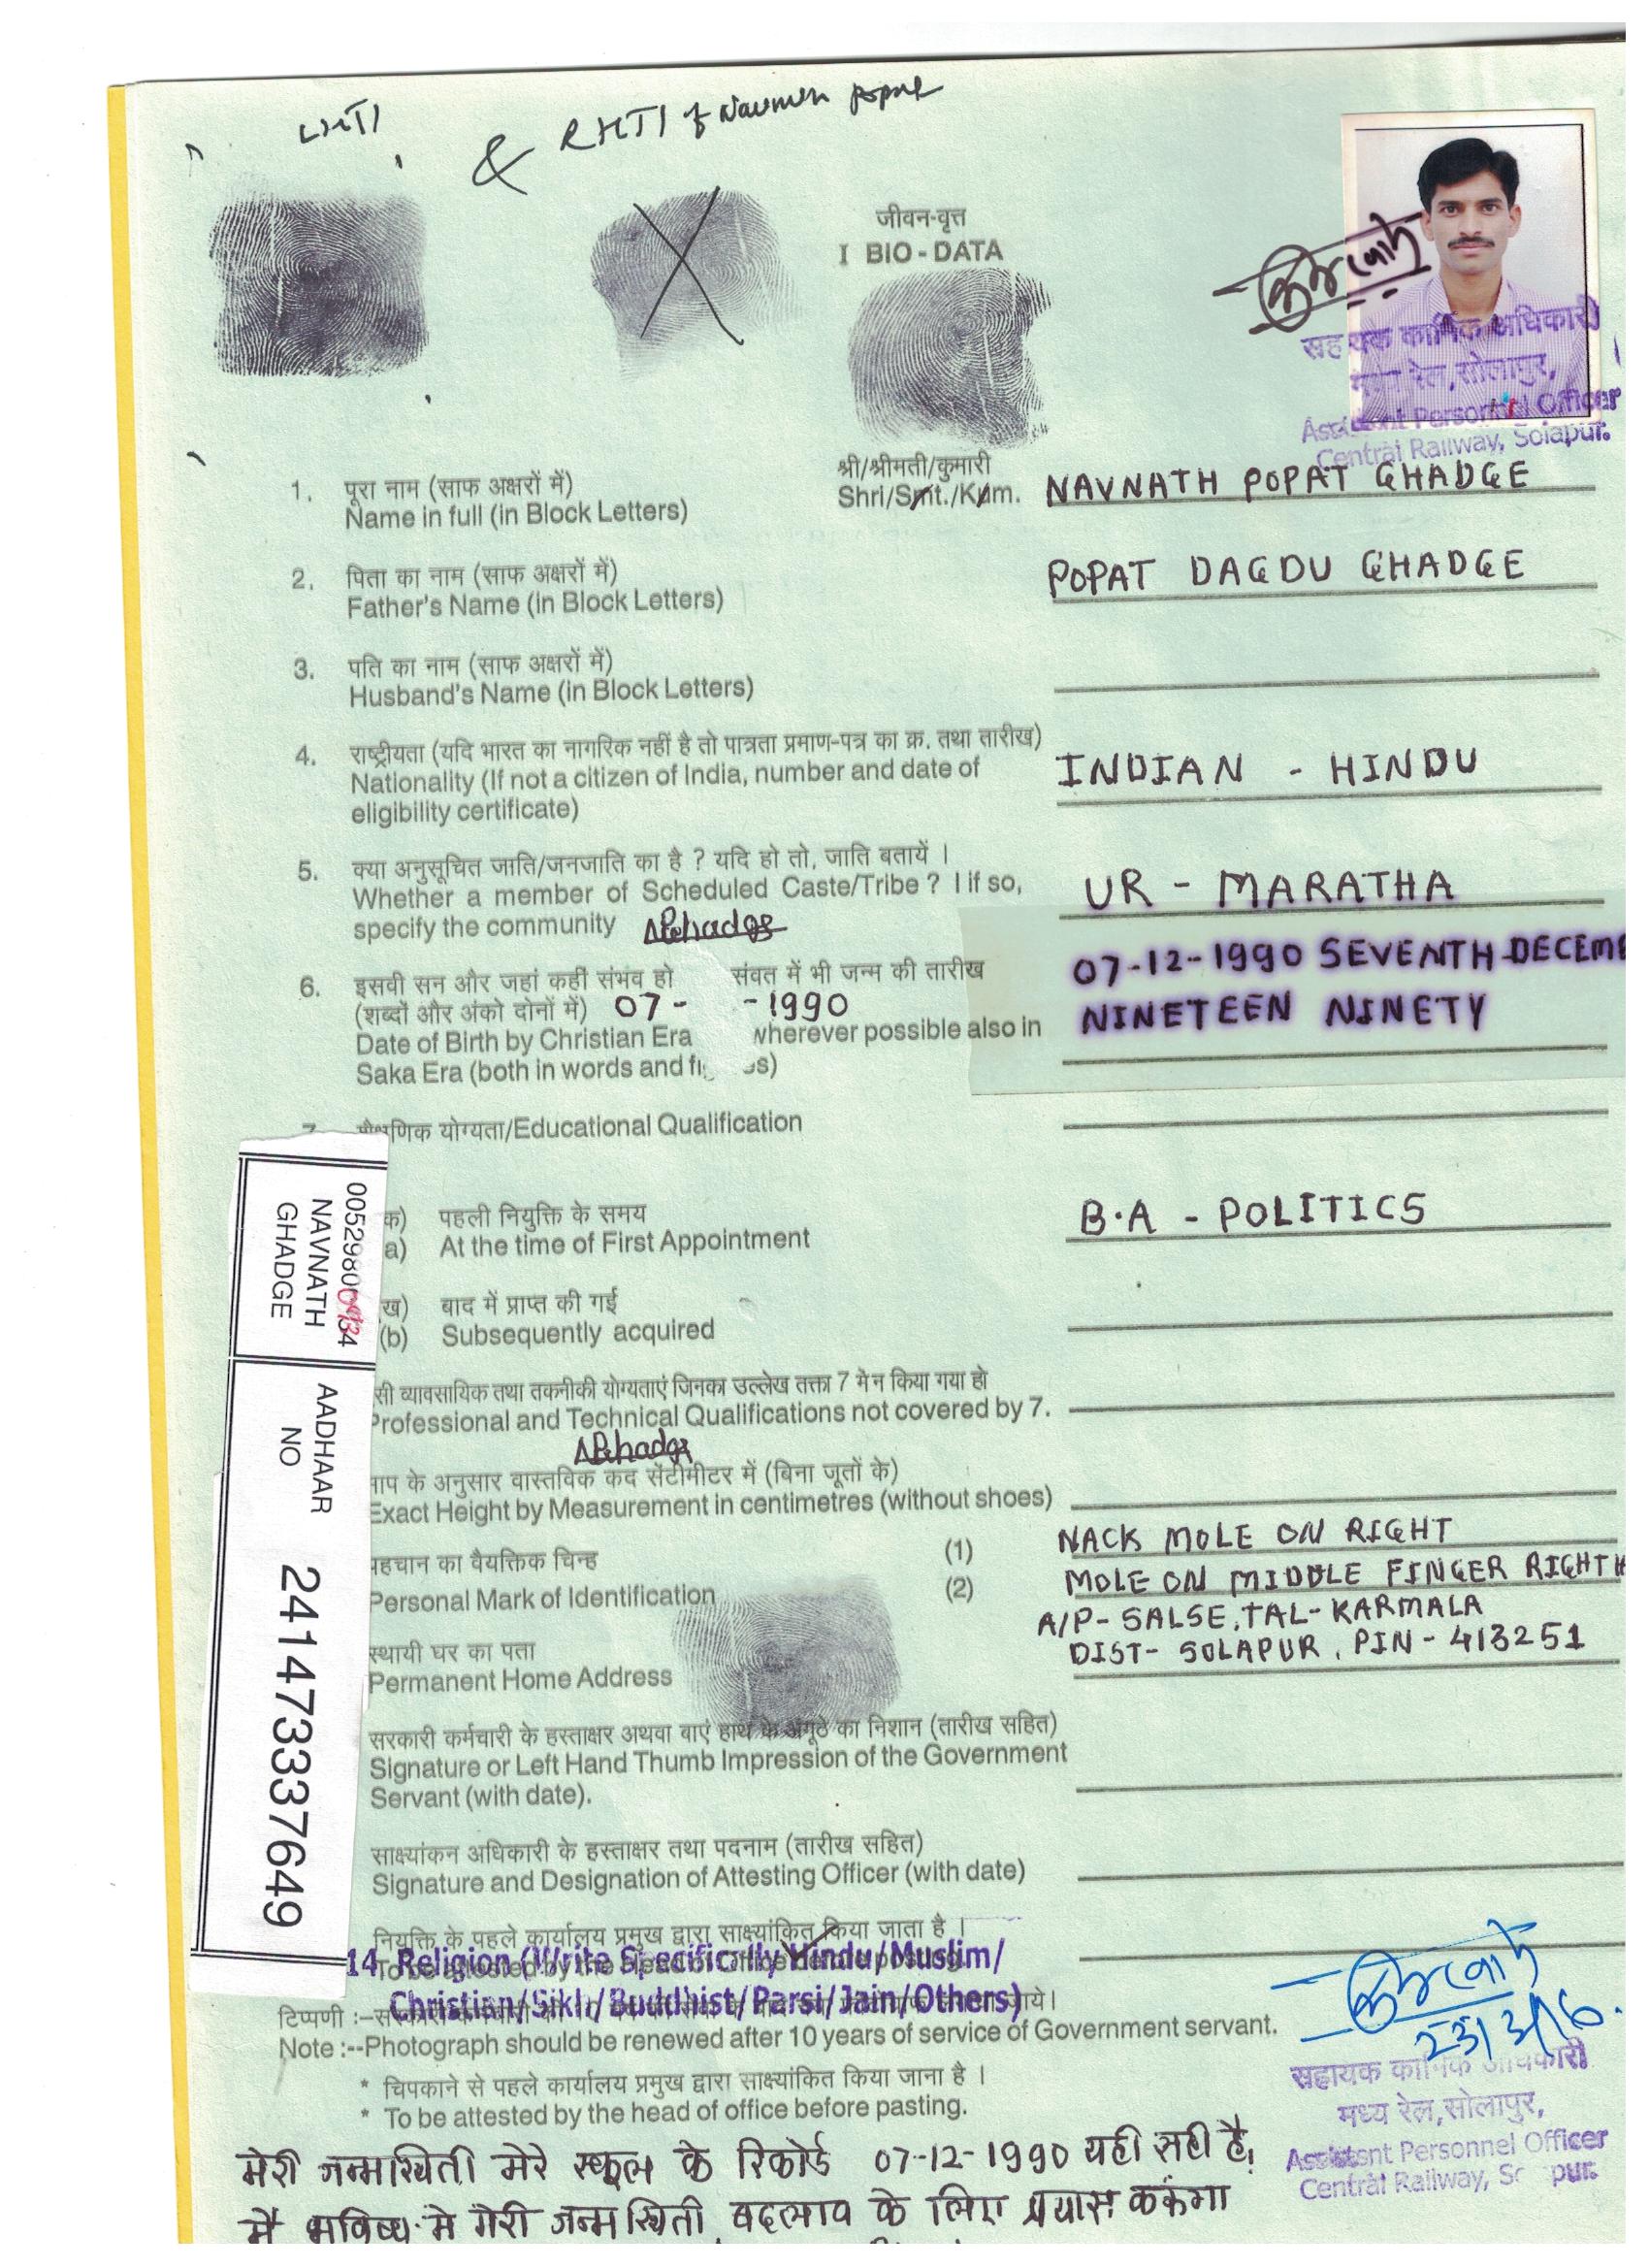 LHTI
& RHTI of Navnath Popat
जीवन-वृत्त
I BIO - DATA
सहायक कार्मिक अधिकारी
मध्य रेल, सोलापुर,
Assistant Personnel Officer
Central Railway, Solapur.
1. पूरा नाम (साफ अक्षरों में) श्री/श्रीमती/कुमारी
Name in full (in Block Letters) Shri/Smt./Kum. NAVNATH POPAT GHADGE
2. पिता का नाम (साफ अक्षरों में)
Father's Name (in Block Letters) POPAT DAGDU GHADGE
3. पति का नाम (साफ अक्षरों में)
Husband's Name (in Block Letters)
4. राष्ट्रीयता (यदि भारत का नागरिक नहीं है तो पात्रता प्रमाण-पत्र का क्र. तथा तारीख)
Nationality (If not a citizen of India, number and date of INDIAN - HINDU
eligibility certificate)
5. क्या अनुसूचित जाति/जनजाति का है ? यदि हो तो, जाति बतायें ।
Whether a member of Scheduled Caste/Tribe ? I if so, UR - MARATHA
specify the community NPGhadge
07-12-1990 SEVENTH DECEM
6. इसवी सन और जहां कहीं संभव हो संवत में भी जन्म की तारीख
(शब्दों और अंको दोनों में) 07- -1990 NINETEEN NINETY
Date of Birth by Christian Era wherever possible also in
Saka Era (both in words and fi es)
शैक्षणिक योग्यता/Educational Qualification
क) पहली नियुक्ति के समय
a) At the time of First Appointment B.A - POLITICS
ख) बाद में प्राप्त की गई
(b) Subsequently acquired
सी व्यावसायिक तथा तकनीकी योग्यताएं जिनका उल्लेख तक्ता 7 में न किया गया हो
Professional and Technical Qualifications not covered by 7.
NPGhadge
माप के अनुसार वास्तविक कद सेंटीमीटर में (बिना जूतों के)
Exact Height by Measurement in centimetres (without shoes)
पहचान का वैयक्तिक चिन्ह (1) NACK MOLE ON RIGHT
Personal Mark of Identification (2) MOLE ON MIDDLE FINGER RIGHT H
A/P- SALSE, TAL- KARMALA
स्थायी घर का पता DIST- SOLAPUR, PIN - 413251
Permanent Home Address
सरकारी कर्मचारी के हस्ताक्षर अथवा बाएं हाथ के अंगूठे का निशान (तारीख सहित)
Signature or Left Hand Thumb Impression of the Government
Servant (with date).
साक्ष्यांकन अधिकारी के हस्ताक्षर तथा पदनाम (तारीख सहित)
Signature and Designation of Attesting Officer (with date)
नियुक्ति के पहले कार्यालय प्रमुख द्वारा साक्ष्यांकित किया जाता है ।
14. Religion (Write Specifically Hindu/Muslim/
Christian/Sikh/Buddhist/Parsi/Jain/Others)
टिप्पणी :–
Note :--Photograph should be renewed after 10 years of service of Government servant.
* चिपकाने से पहले कार्यालय प्रमुख द्वारा साक्ष्यांकित किया जाना है ।
* To be attested by the head of office before pasting.
23/3/16.
सहायक कार्मिक अधिकारी
मध्य रेल, सोलापुर,
Assistent Personnel Officer
Central Railway, So pur.
मेरी जन्मथिती मेरे स्कूल के रिकोर्ड 07-12-1990 यही सही है।
मैं भविष्य मे मेरी जन्मथिती बदलाव के लिए प्रयास करूंगा
NAVNATH
GHADGE
AADHAAR
NO
241473337649